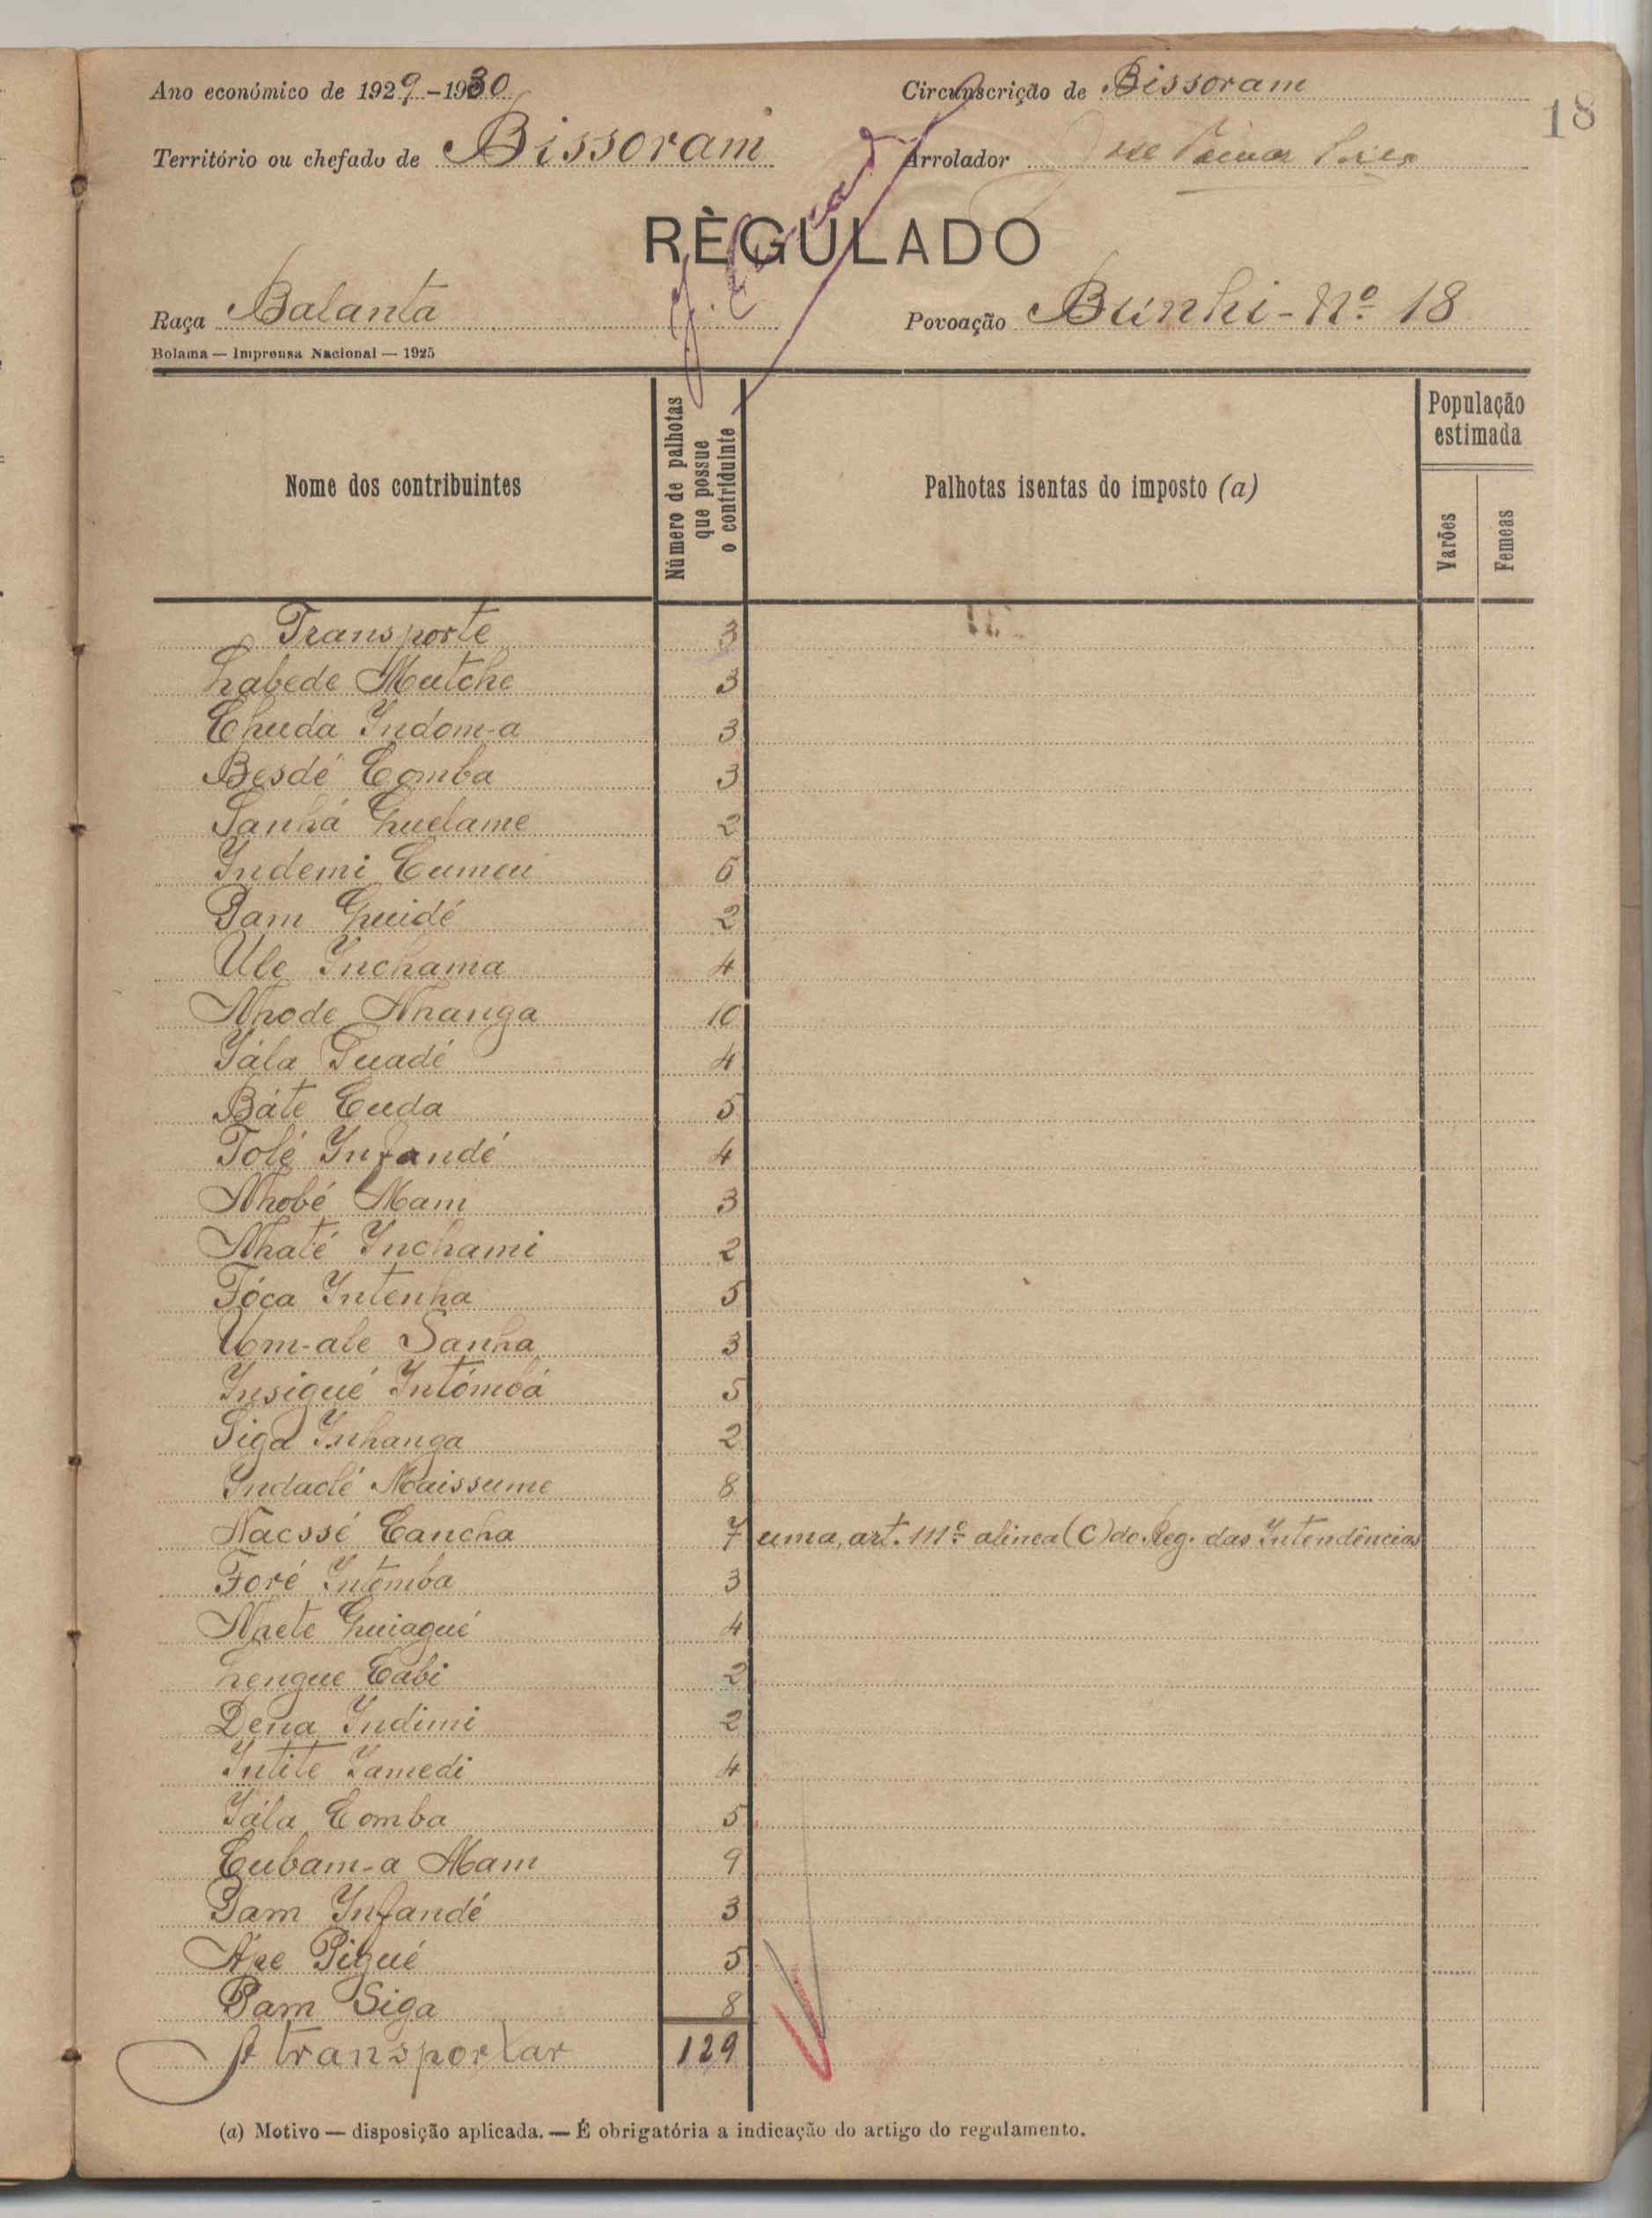 Ano económico de 1929-1930
Circunscrição de Bissoram
18
Território ou chefado de Bissoram
Arrolador José
RÈGULADO
Raça Balanta
Povoação Bunhi-Nº 18
Bolama — Imprensa Nacional — 1925
Nome dos contribuintes
Número de palhotas que possue o contriduinte
Palhotas isentas do imposto (a)
População estimada
Varões
Femeas
Transporte 3
Labede Mutche 3
Chuda Indom-a 3
Besdé Comba 3
Sanhá Gudame 2
Indemi Cumeu 6
Bam Guidé 2
Ule Inchama 4
Nhode Nhanga 10
Iála Tuadé 4
Báte Cuda 5
Tolé Infandé 4
Nhobé Mam 3
Nhaté Inchami 2
Fóca Intenha 5
Um-ale Sanha 3
Insigué Intómbá 5
Siga Inhanga 2
Indaolé Maissume 8
Nacssé Cancha 7 uma, art. 111º alinea (C) do Reg. das Intendências
Foré Intomba 3
Naete Guiagué 4
Lengue Cabi 2
Dena Indimi 2
Intite Iamedi 4
Iála Comba 5
Cubam-a Mam 9
Bam Infandé 3
Pigué 5
Bam Siga 8
A transportar 129
(a) Motivo — disposição aplicada. — É obrigatória a indicação do artigo do regulamento.